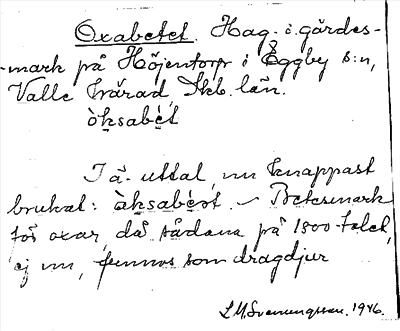 Oxabetet. Hag i gärdes-
-mark på Höjentorp i Eggby s:n,
Valle härad, Skb. län.
òksabèt
I ä. uttal, nu knappast
brukat: àksabèst. – Betesmark
för oxar, då sådana på 1800-talet,
ej nu, funnos som dragdjur
L.M. Svenungsson. 1946.